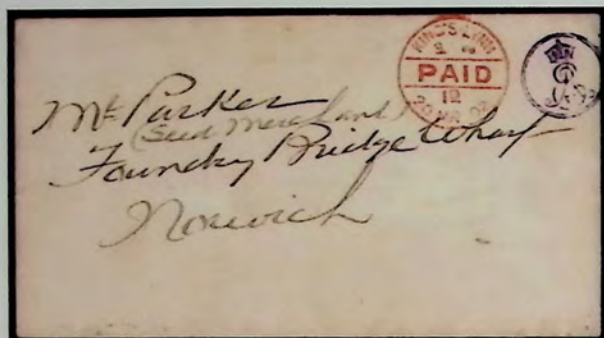 KING'S LYNN
PAID
12
20 MR 02
Mr Parker
(Seed Merchant)
Foundry Bridge Wharf
Norwich